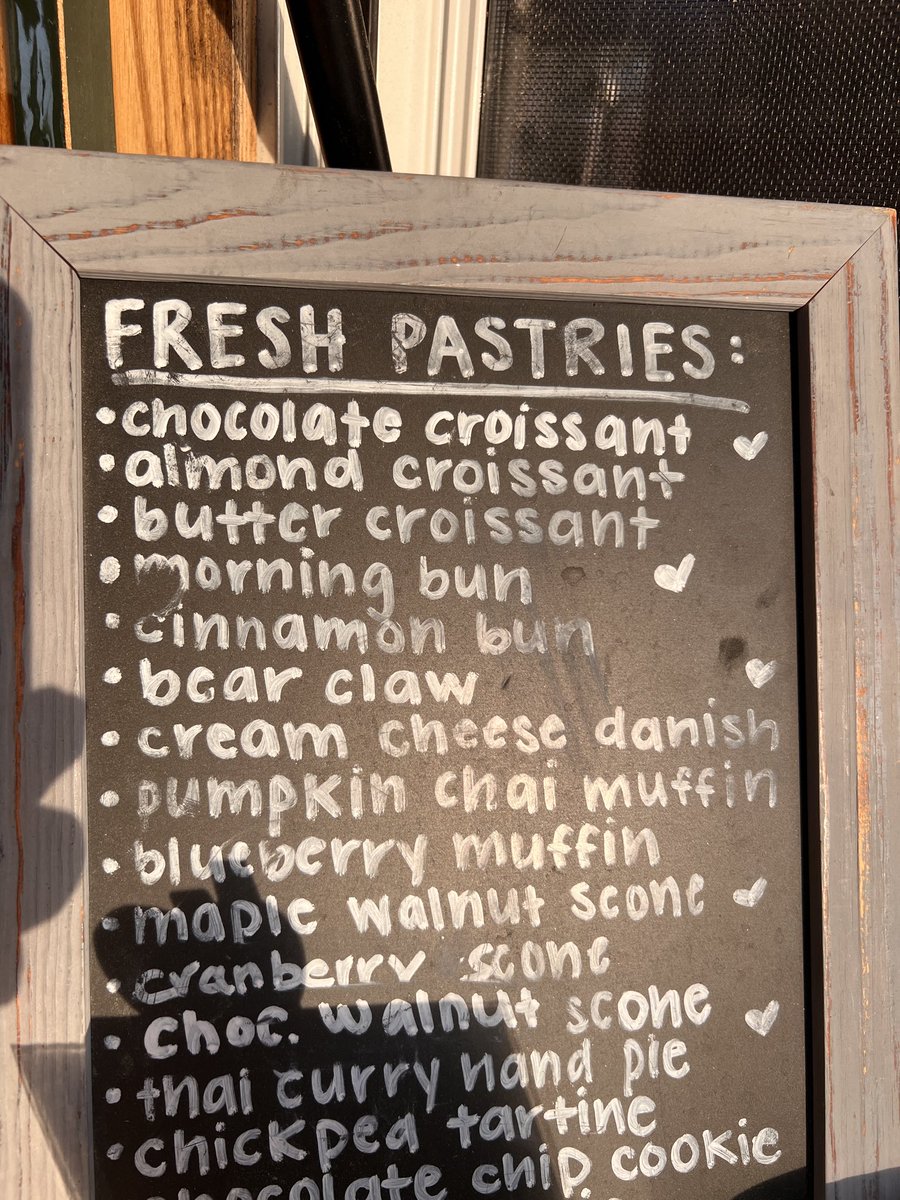 FRESH PASTRIES:
• chocolate croissant ♥
• almond croissant
• butter croissant
• morning bun ♥
• cinnamon bun
• bear claw ♥
• cream cheese danish
• pumpkin chai muffin
• blueberry muffin
• maple walnut scone ♥
• cranberry scone
• choc. walnut scone ♥
• thai curry hand pie
• chickpea tartine
chocolate chip cookie